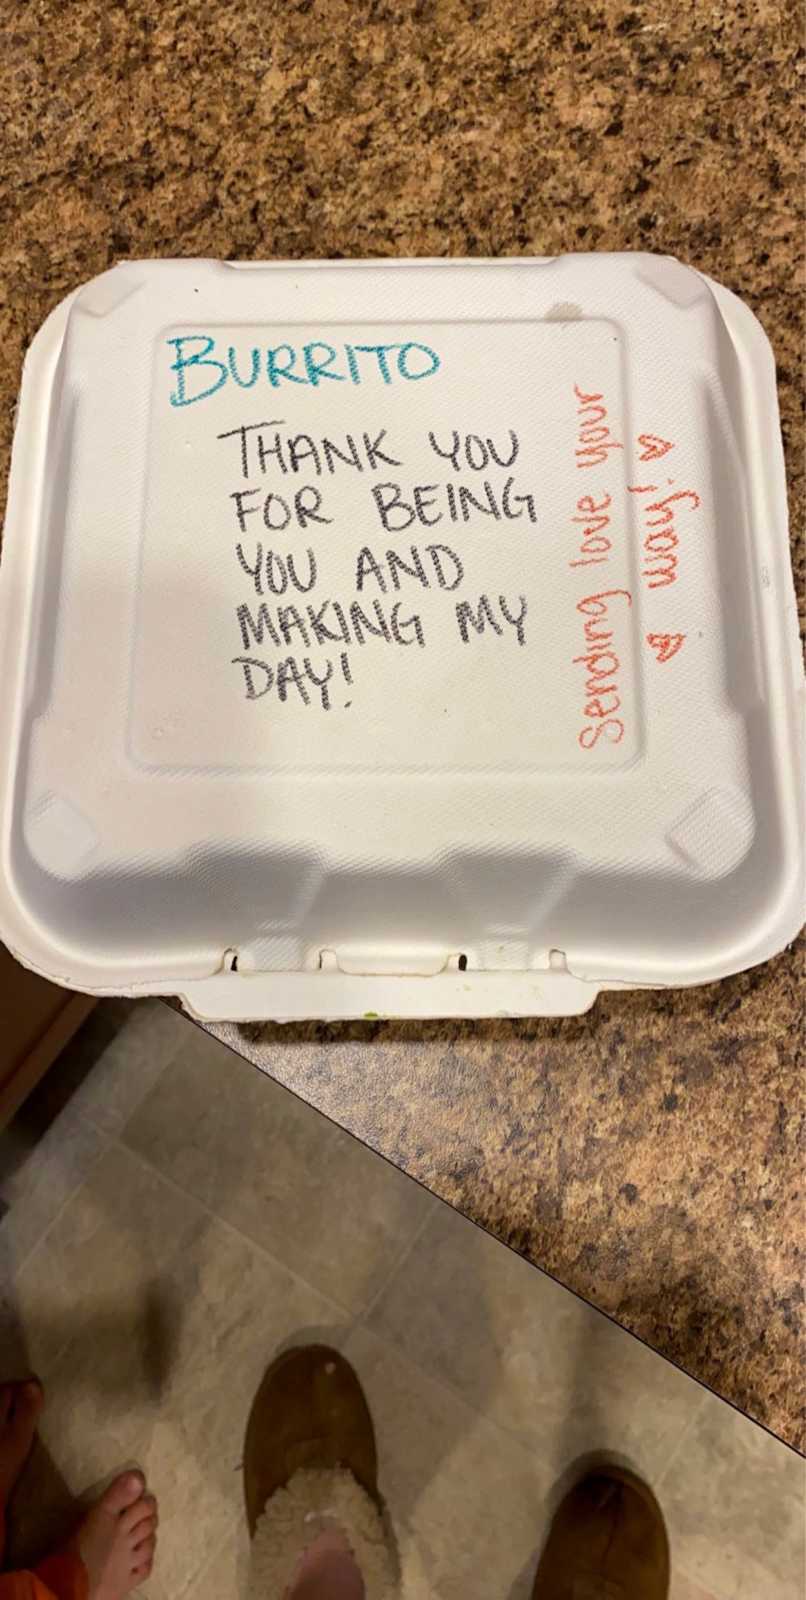 BURRITO
THANK YOU
FOR BEING
YOU AND
MAKING MY
DAY!
Sending love your
way!